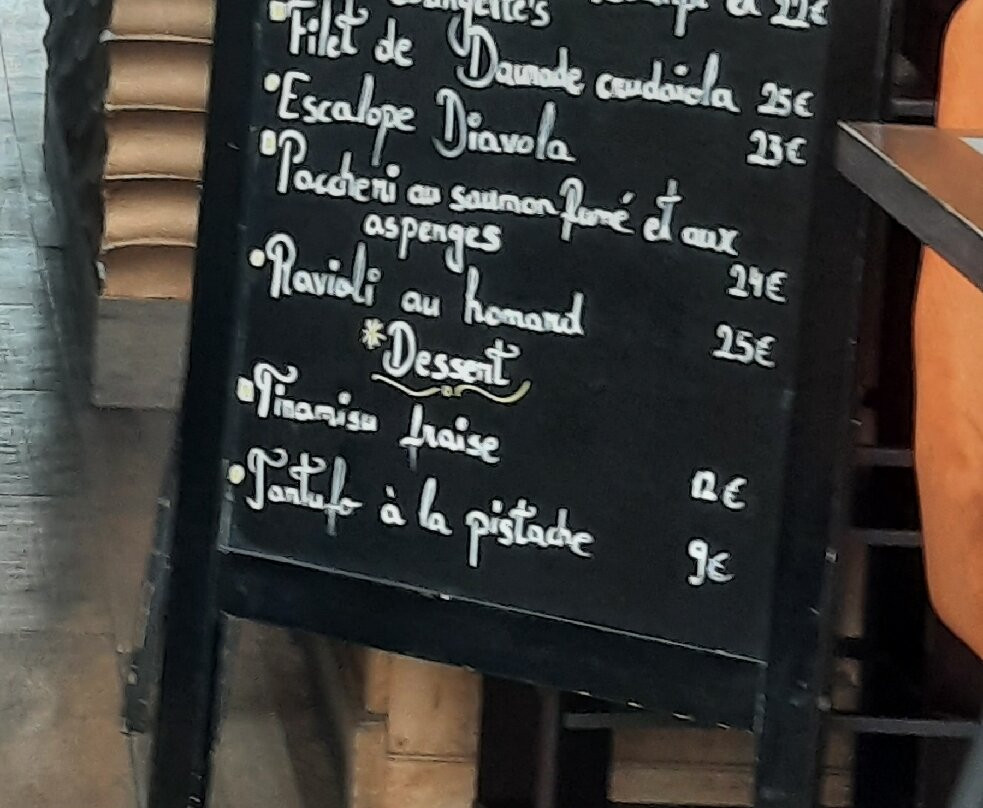 22€
Filet de Daurade crudaiola 25€
Escalope Diavola 23€
Paccheri au saumon fumé et aux
asperges 24€
Ravioli au homard 25€
*Dessert
Tiramisu fraise 12€
Tartufo à la pistache 9€